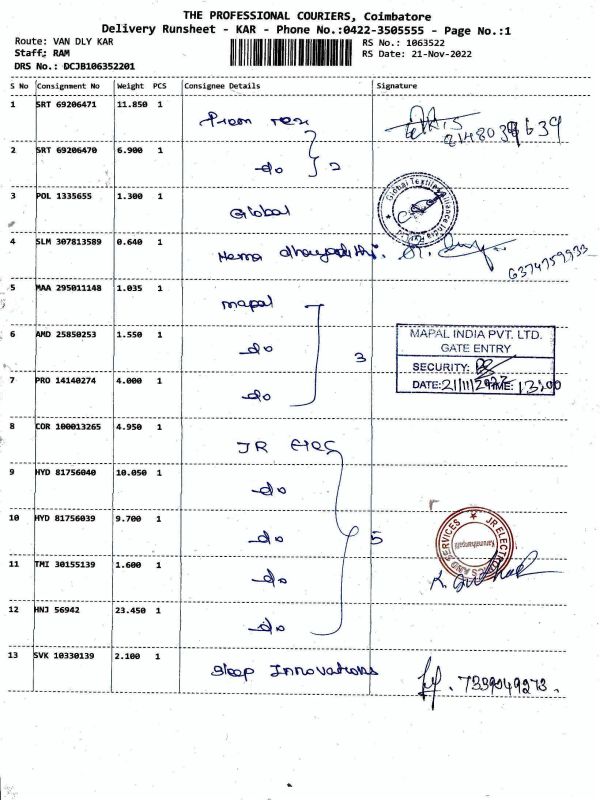 THE PROFESSIONAL COURIERS, Coimbatore
Delivery Runsheet - KAR - Phone No.:0422-3505555 - Page No.:1
Route: VAN DLY KAR
RS No.: 1063522
Staff: RAM
RS Date: 21-Nov-2022
DRS No.: DCJB106352201
S No Consignment No Weight PCS Consignee Details Signature
1 SRT 69206471 11.850 1
2 SRT 69206470 6.900 1 do 2
3 POL 1335655 1.300 1 Global
Global Textile Alliance India
4 SLM 307813589 0.640 1 Hema
6374759933
5 MAA 295011148 1.035 1 mapal
6 AMD 25850253 1.550 1 do 3
MAPAL INDIA PVT. LTD.
GATE ENTRY
SECURITY:
DATE:21/11/2022 TIME: 13:00
7 PRO 14140274 4.000 1 do
8 COR 100013265 4.950 1 JR Elec
9 HYD 81756040 10.050 1 do
10 HYD 81756039 9.700 1 do 5
JR ELECTRONICS AND SERVICES
11 TMI 30155139 1.600 1 do
12 HNJ 56942 23.450 1 do
13 SVK 10330139 2.100 1 Sleep Innovations
7339049273.